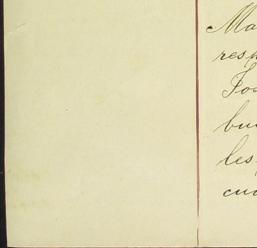 Ma
resp
For
bu
les
cu